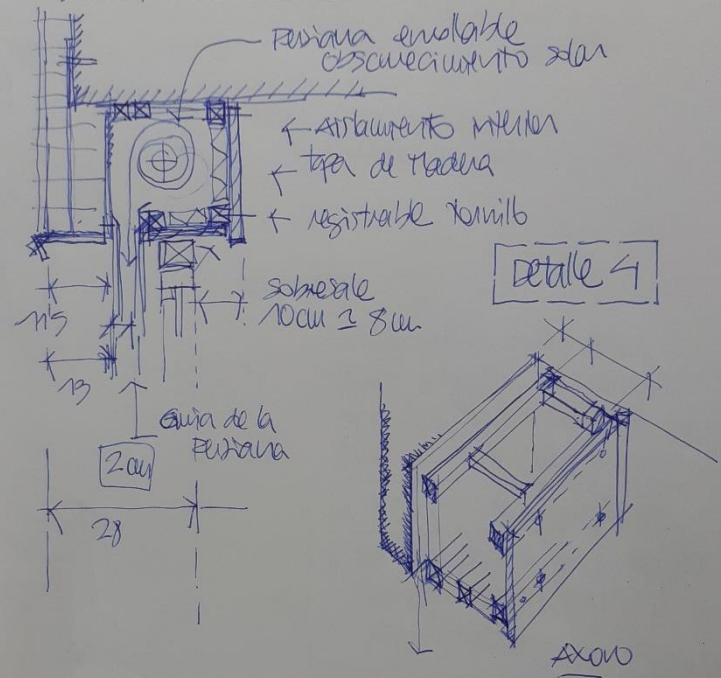 Persiana enrollable
obscurecimiento solar
← Aislamiento interior
← tapa de madera
← registrable tornillo
Detalle 4
sobresale
10cm ± 8cm.
11'5
13
Guía de la
Persiana
2cm
28
AXONO